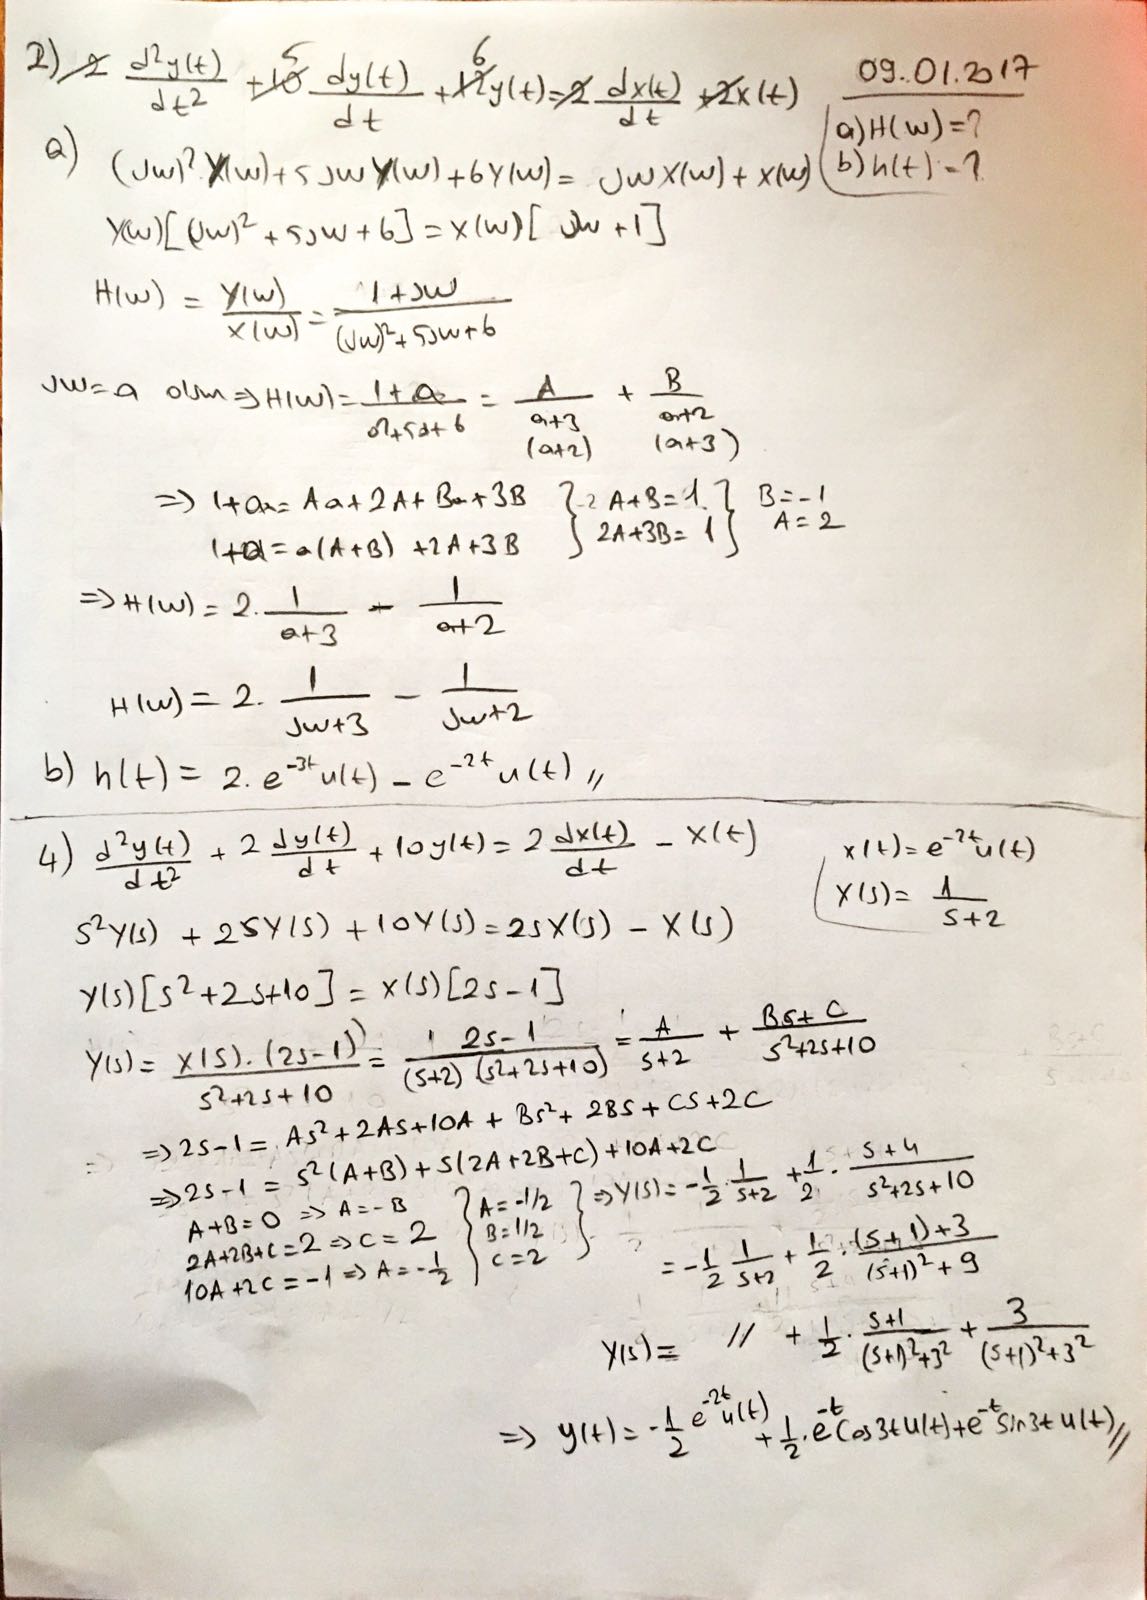 2) 2 d²y(t)/dt² + 10 5 dy(t)/dt + 12 6 y(t) = 2 dx(t)/dt + 2x(t)
09.01.2017
a) H(w)=?
b) h(t)=?
a) (Jw)² Y(w) + 5Jw Y(w) + 6Y(w) = Jw X(w) + X(w)
Y(w)[(Jw)² + 5Jw + 6] = X(w)[Jw + 1]
H(w) = Y(w)/X(w) = 1+Jw/(Jw)²+5Jw+6
Jw = a olsun => H(w) = 1+a/a²+5a+6 = A/a+3 (a+2) + B/a+2 (a+3)
=> 1+a = Aa+2A+Ba+3B } -2 A+B=1 } B=-1
1+a = a(A+B) +2A+3B } 2A+3B=1 } A=2
=> H(w) = 2. 1/a+3 - 1/a+2
H(w) = 2. 1/Jw+3 - 1/Jw+2
b) h(t) = 2. e^-3t u(t) - e^-2t u(t) //
4) d²y(t)/dt² + 2 dy(t)/dt + 10y(t) = 2 dx(t)/dt - x(t)
x(t) = e^-2t u(t)
X(s) = 1/s+2
s²Y(s) + 2sY(s) + 10Y(s) = 2sX(s) - X(s)
Y(s)[s²+2s+10] = X(s)[2s-1]
Y(s) = X(s).(2s-1)/s²+2s+10 = 2s-1/(s+2)(s²+2s+10) = A/s+2 + Bs+C/s²+2s+10
=> 2s-1 = As²+2As+10A + Bs²+2Bs+Cs+2C
=> 2s-1 = s²(A+B) + s(2A+2B+C) + 10A+2C
A+B=0 => A=-B } A=-1/2 } => Y(s) = -1/2 . 1/s+2 + 1/2 . s+4/s²+2s+10
2A+2B+C=2 => C=2 } B=1/2
10A+2C=-1 => A=-1/2 } C=2
= -1/2 1/s+2 + 1/2 . (s+1)+3/(s+1)²+9
Y(s) = // + 1/2 . s+1/(s+1)²+3² + 3/(s+1)²+3²
=> y(t) = -1/2 e^-2t u(t) + 1/2 . e^-t cos3t u(t) + e^-t sin3t u(t) //